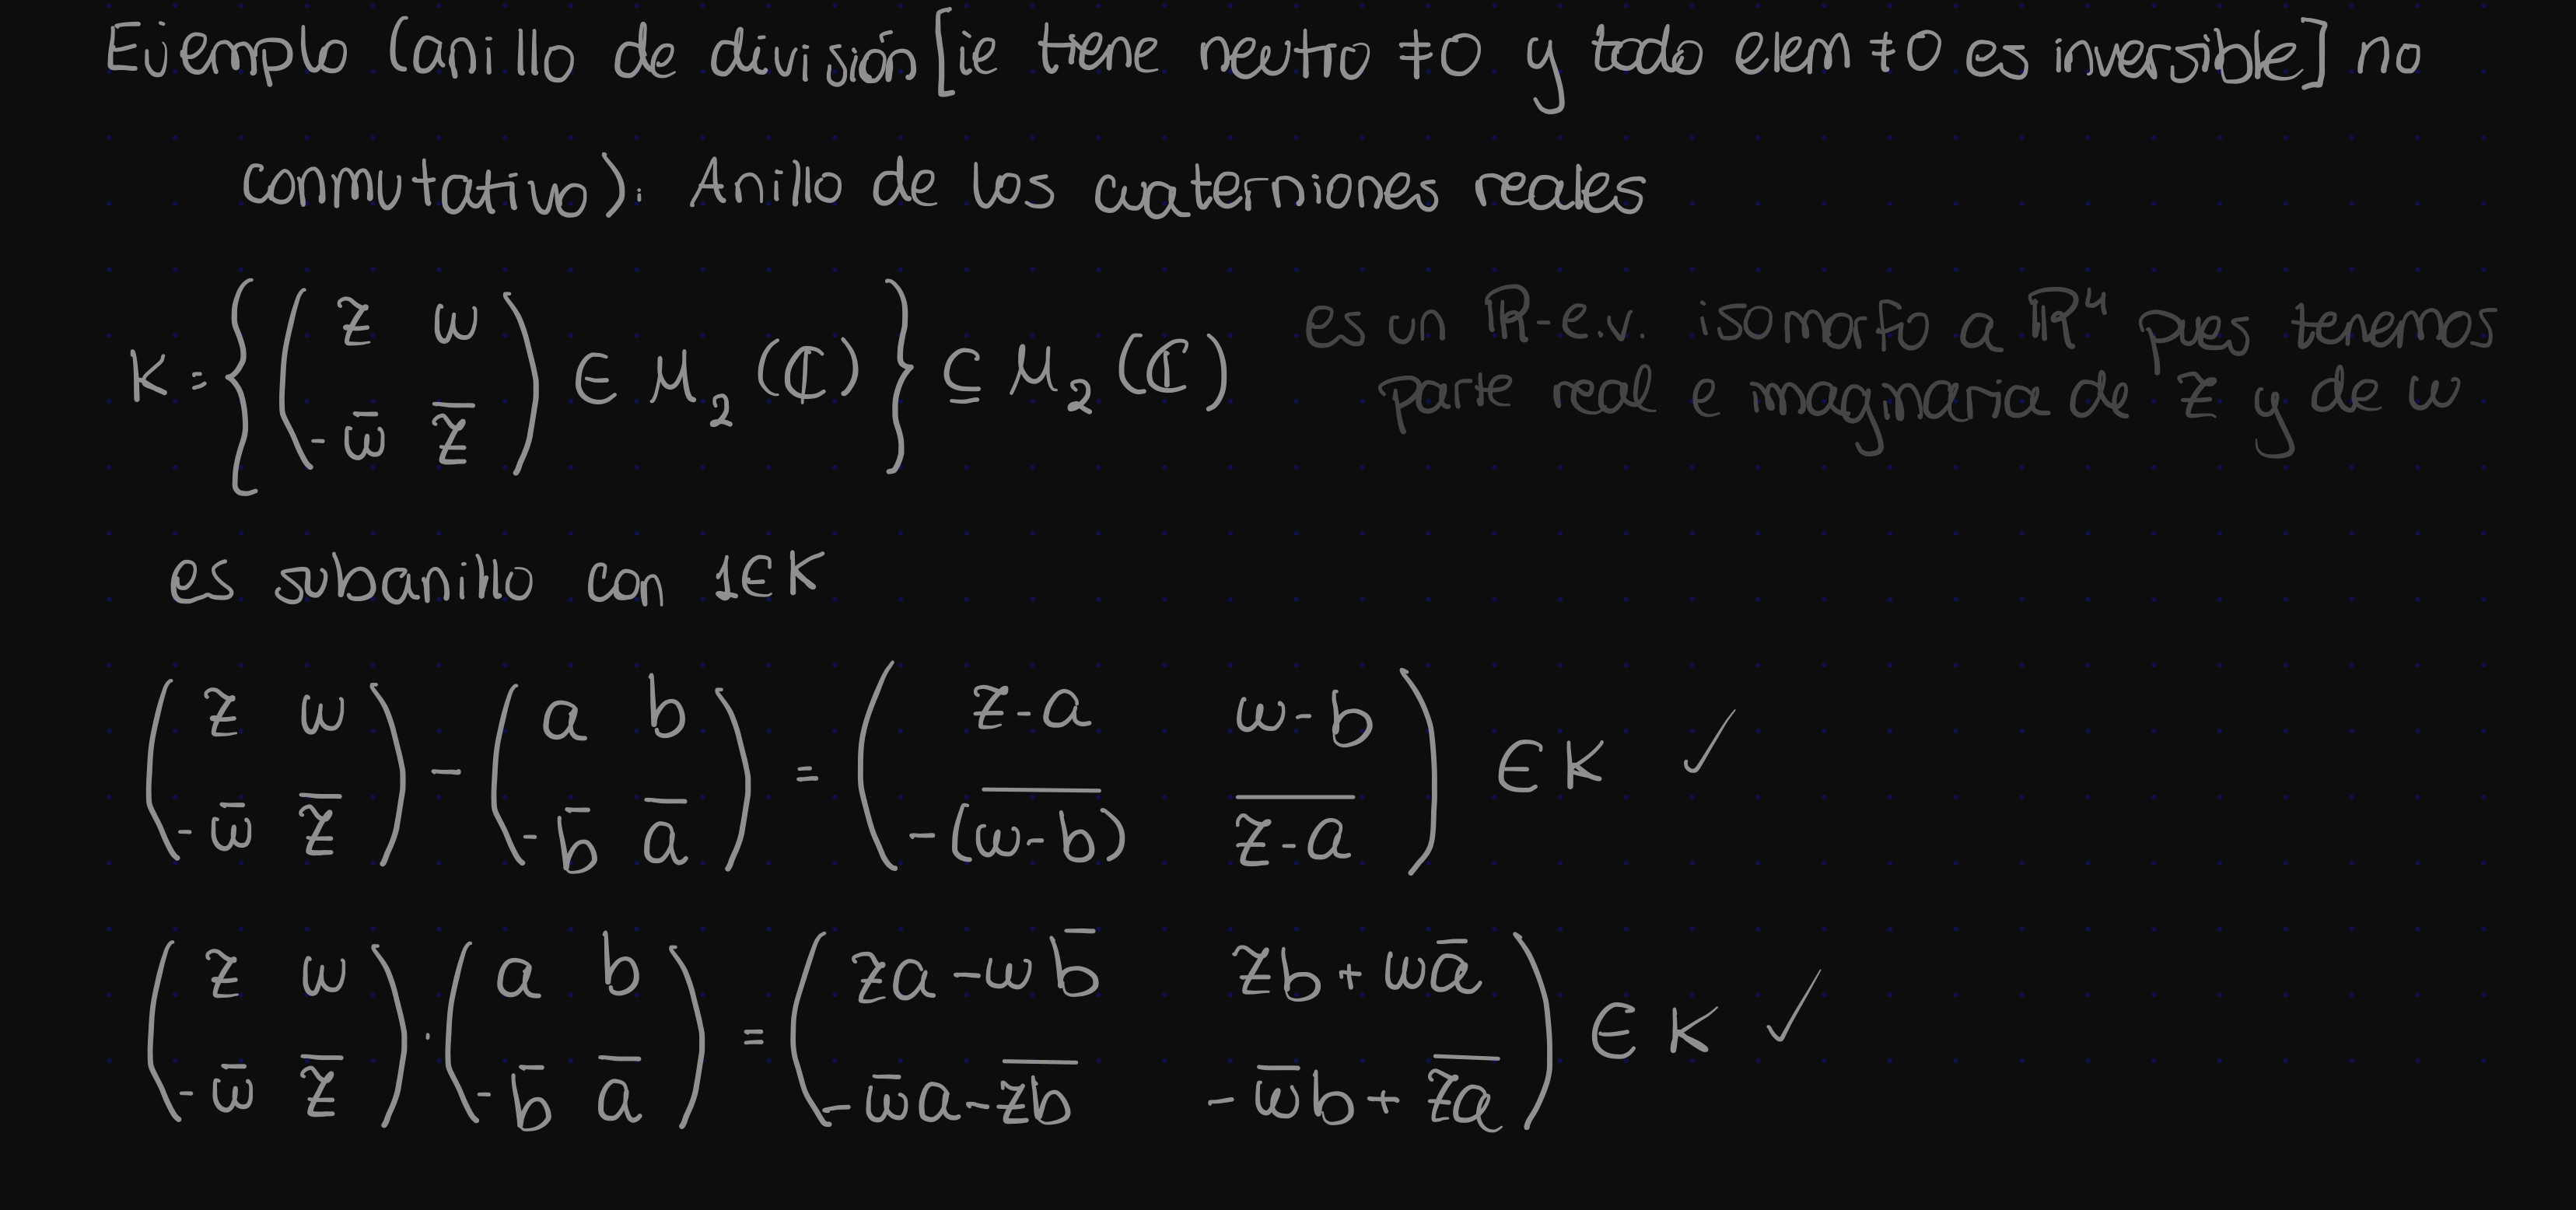 Ejemplo (anillo de división [ie tiene neutro ≠0 y todo elem ≠0 es inversible] no
conmutativo): Anillo de los cuaterniones reales
K = { ( z w ; -w̄ z̄ ) ∈ M₂(ℂ) } ⊆ M₂(ℂ) es un ℝ-e.v. isomorfo a ℝ⁴ pues tenemos
parte real e imaginaria de z y de w
es subanillo con 1∈K
( z w ; -w̄ z̄ ) - ( a b ; -b̄ ā ) = ( z-a w-b ; -\overline{(w-b)} \overline{z-a} ) ∈ K ✓
( z w ; -w̄ z̄ ) · ( a b ; -b̄ ā ) = ( za-wb̄ zb+wā ; -w̄a-\overline{zb} -w̄b+\overline{za} ) ∈ K ✓